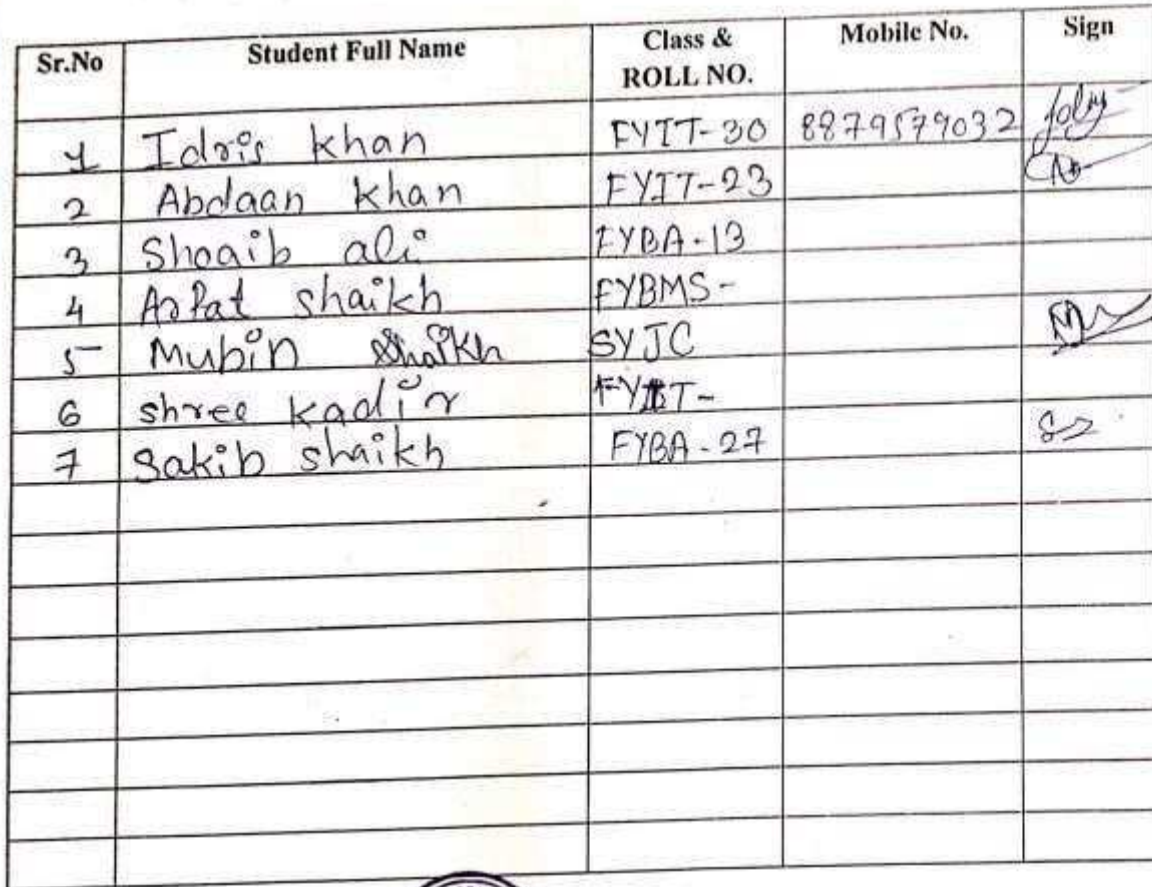 Sr.No Student Full Name Class & ROLL NO. Mobile No. Sign
1 Idris Khan FYIT-30 8879579032
2 Abdaan Khan FYIT-23
3 Shoaib ali FYBA-13
4 Arfat shaikh FYBMS-
5 Mubin Shaikh SYJC
6 shree kadir FYIT-
7 Sakib shaikh FYBA-27